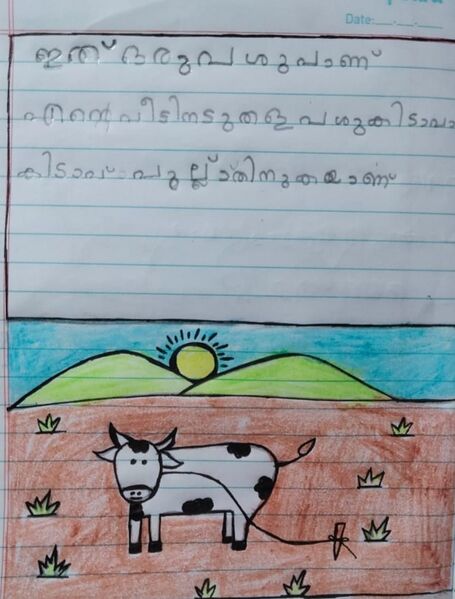 Date:
ഇത് ഒരു പശുവാണ്
എന്റെ വീടിനടുതള പശുകിടാവാ
കിടാവ് പുല്ല് തിനുകയാണ്